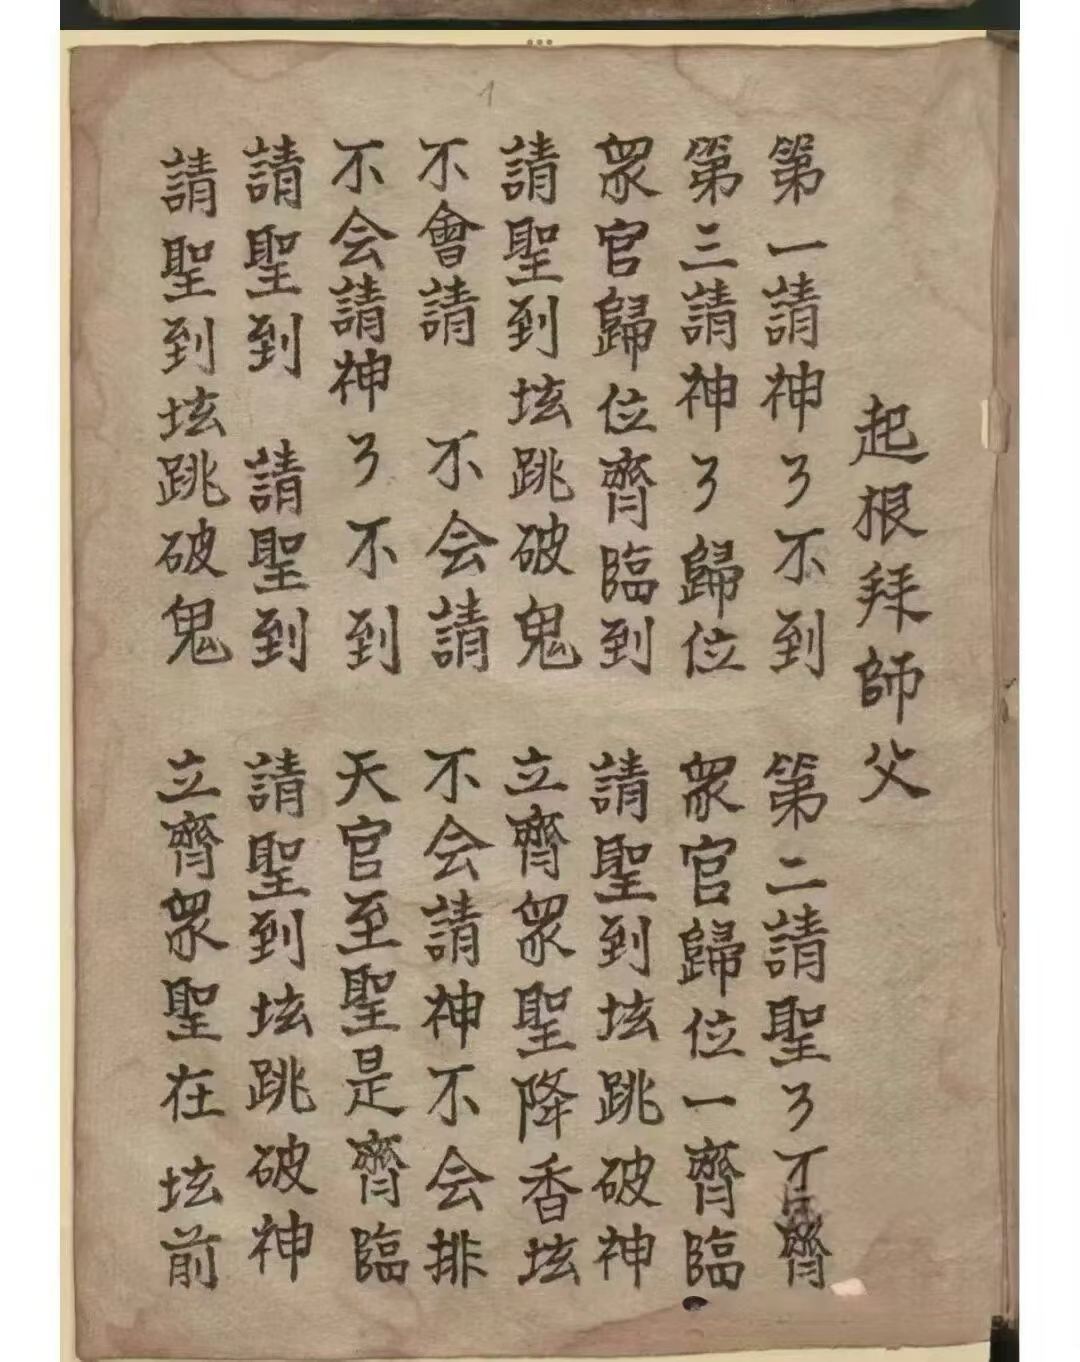 1
起根拜師父
第一請神了不到 第二請聖了不齊
第三請神了歸位 衆官歸位一齊臨
衆官歸位齊臨到 請聖到坛跳破神
請聖到坛跳破鬼 立齊衆聖降香坛
不會請 不会請 不会請神不会排
不会請神了不到 天官至聖是齊臨
請聖到 請聖到 請聖到坛跳破神
請聖到坛跳破鬼 立齊衆聖在坛前